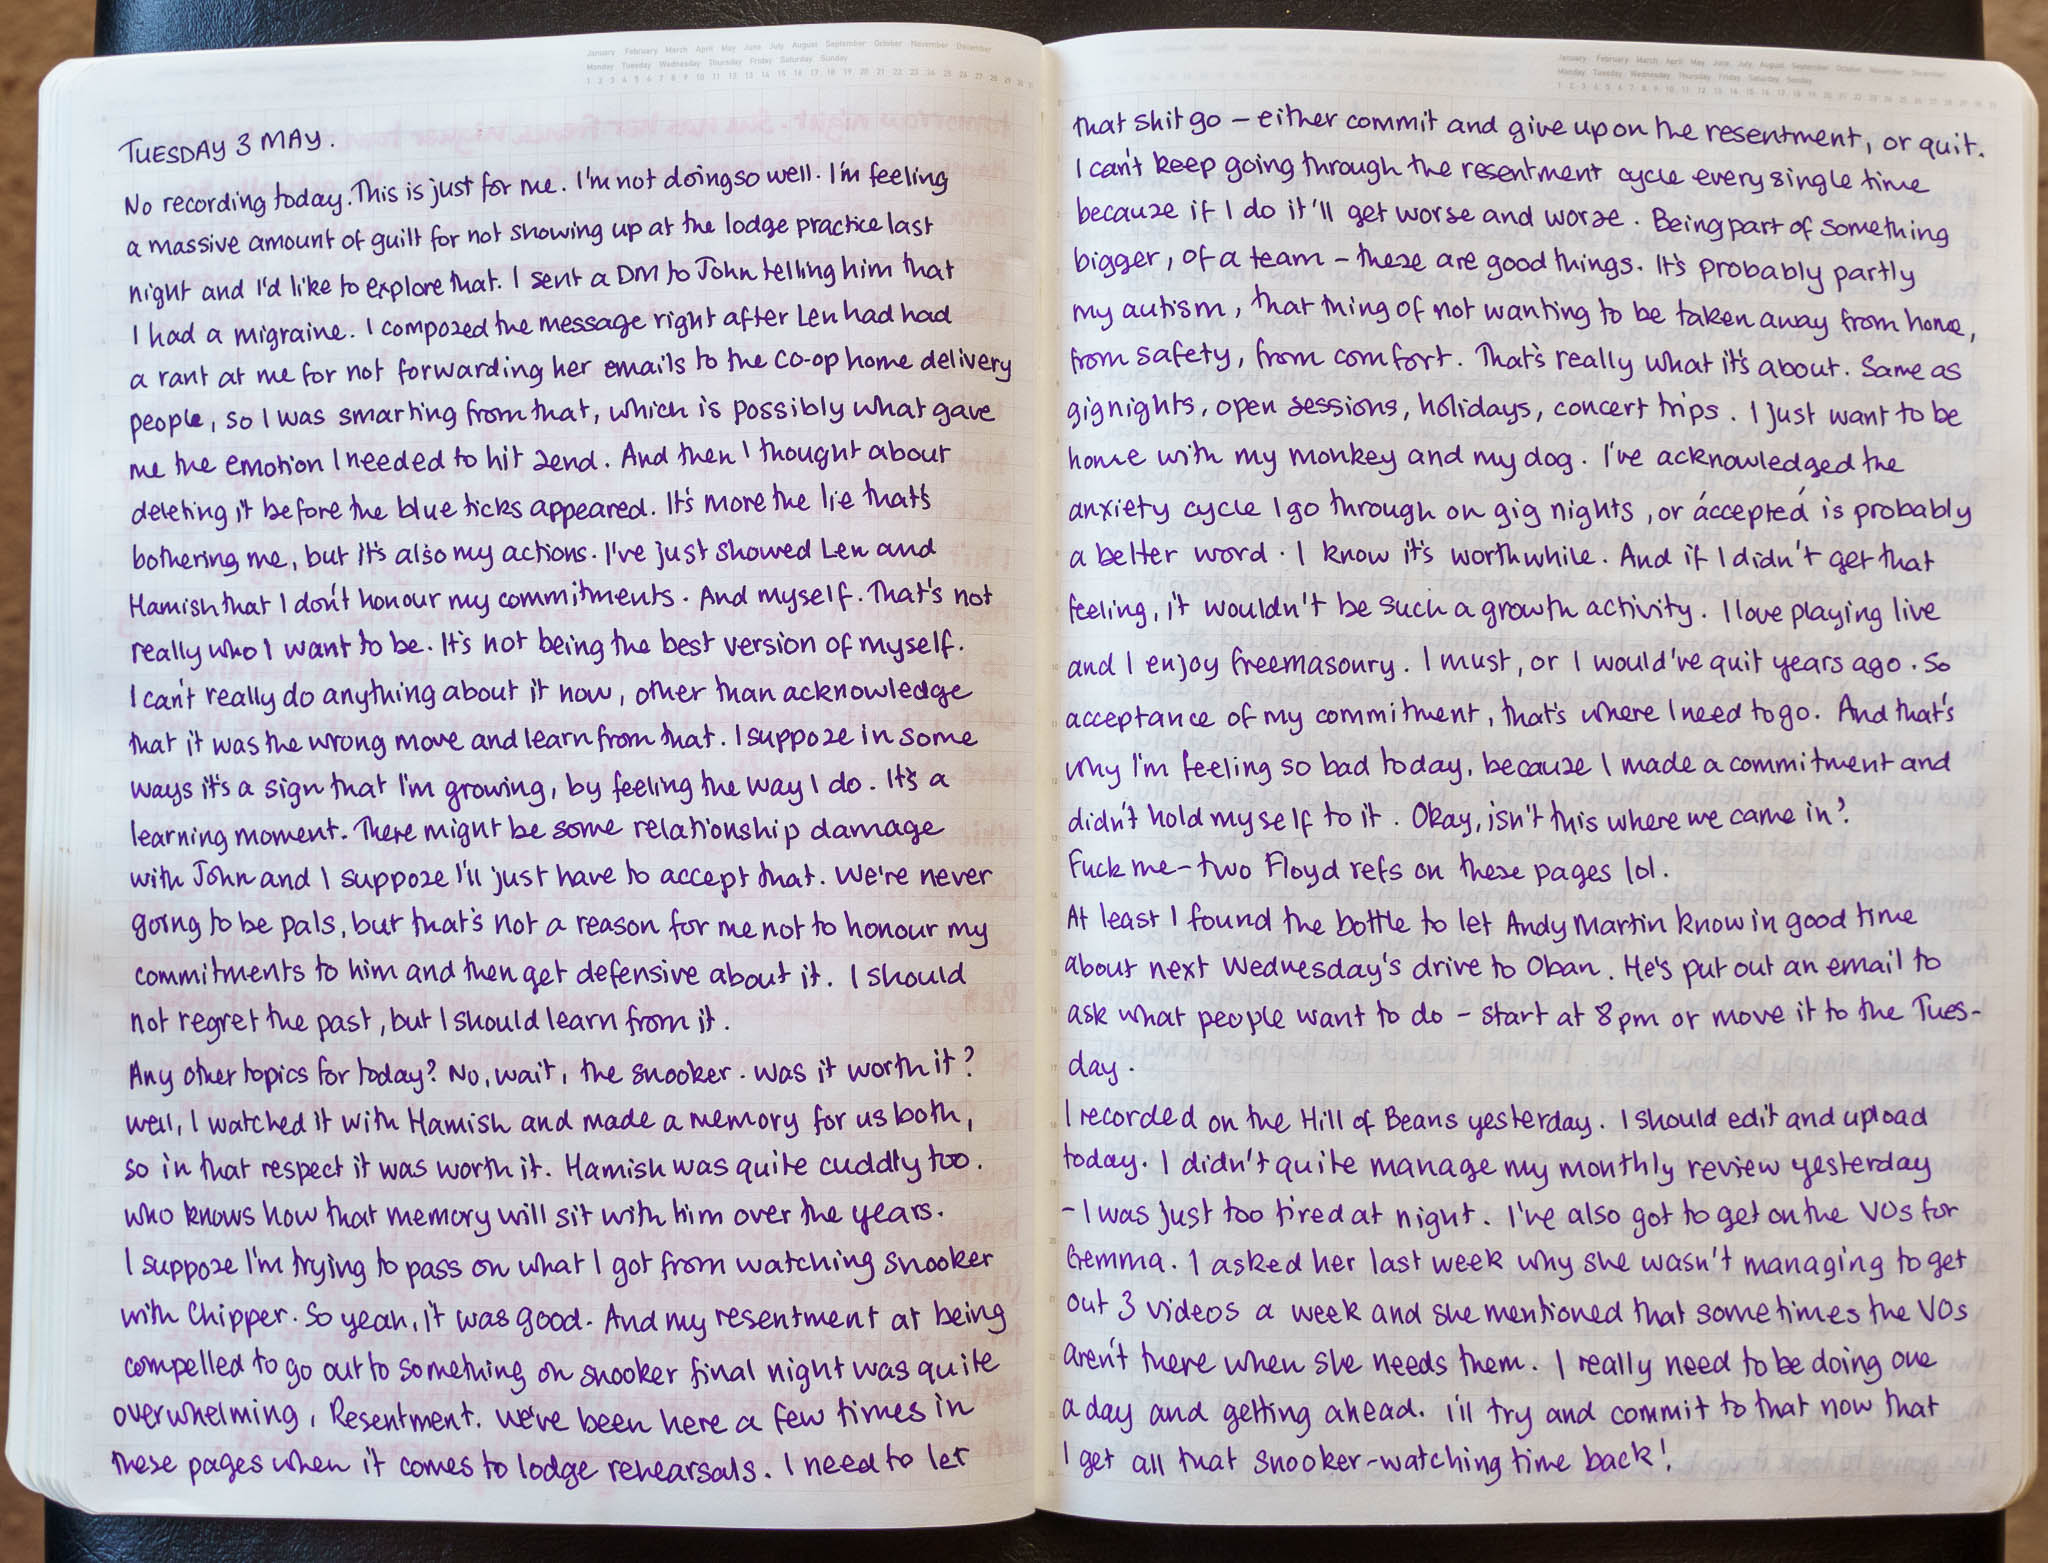 January February March April May June July August September October November December
Monday Tuesday Wednesday Thursday Friday Saturday Sunday
1 2 3 4 5 6 7 8 9 10 11 12 13 14 15 16 17 18 19 20 21 22 23 24 25 26 27 28 29 30 31
TUESDAY 3 MAY.
No recording today. This is just for me. I'm not doing so well. I'm feeling
a massive amount of guilt for not showing up at the lodge practice last
night and I'd like to explore that. I sent a DM to John telling him that
I had a migraine. I composed the message right after Len had had
a rant at me for not forwarding her emails to the co-op home delivery
people, so I was smarting from that, which is possibly what gave
me the emotion I needed to hit send. And then I thought about
deleting it before the blue ticks appeared. It's more the lie that's
bothering me, but it's also my actions. I've just showed Len and
Hamish that I don't honour my commitments. And myself. That's not
really who I want to be. It's not being the best version of myself.
I can't really do anything about it now, other than acknowledge
that it was the wrong move and learn from that. I suppose in some
ways it's a sign that I'm growing, by feeling the way I do. It's a
learning moment. There might be some relationship damage
with John and I suppose I'll just have to accept that. We're never
going to be pals, but that's not a reason for me not to honour my
commitments to him and then get defensive about it. I should
not regret the past, but I should learn from it.
Any other topics for today? No, wait, the snooker. Was it worth it?
Well, I watched it with Hamish and made a memory for us both,
so in that respect it was worth it. Hamish was quite cuddly too.
Who knows how that memory will sit with him over the years.
I suppose I'm trying to pass on what I got from watching snooker
with Chipper. So yeah, it was good. And my resentment at being
compelled to go out to something on snooker final night was quite
overwhelming. Resentment. We've been here a few times in
these pages when it comes to lodge rehearsals. I need to let
January February March April May June July August September October November December
Monday Tuesday Wednesday Thursday Friday Saturday Sunday
1 2 3 4 5 6 7 8 9 10 11 12 13 14 15 16 17 18 19 20 21 22 23 24 25 26 27 28 29 30 31
that shit go – either commit and give up on the resentment, or quit.
I can't keep going through the resentment cycle every single time
because if I do it'll get worse and worse. Being part of something
bigger, of a team – these are good things. It's probably partly
my autism, that thing of not wanting to be taken away from home,
from safety, from comfort. That's really what it's about. Same as
gig nights, open sessions, holidays, concert trips. I just want to be
home with my monkey and my dog. I've acknowledged the
anxiety cycle I go through on gig nights, or 'accepted' is probably
a better word. I know it's worthwhile. And if I didn't get that
feeling, it wouldn't be such a growth activity. I love playing live
and I enjoy freemasonry. I must, or I would've quit years ago. So
acceptance of my commitment, that's where I need to go. And that's
why I'm feeling so bad today, because I made a commitment and
didn't hold myself to it. Okay, isn't this where we came in?
Fuck me – two Floyd refs on these pages lol.
At least I found the bottle to let Andy Martin know in good time
about next Wednesday's drive to Oban. He's put out an email to
ask what people want to do – start at 8pm or move it to the Tues-
day.
I recorded on the Hill of Beans yesterday. I should edit and upload
today. I didn't quite manage my monthly review yesterday
– I was just too tired at night. I've also got to get on the VOs for
Gemma. I asked her last week why she wasn't managing to get
out 3 videos a week and she mentioned that sometimes the VOs
aren't there when she needs them. I really need to be doing one
a day and getting ahead. I'll try and commit to that now that
I get all that snooker-watching time back!